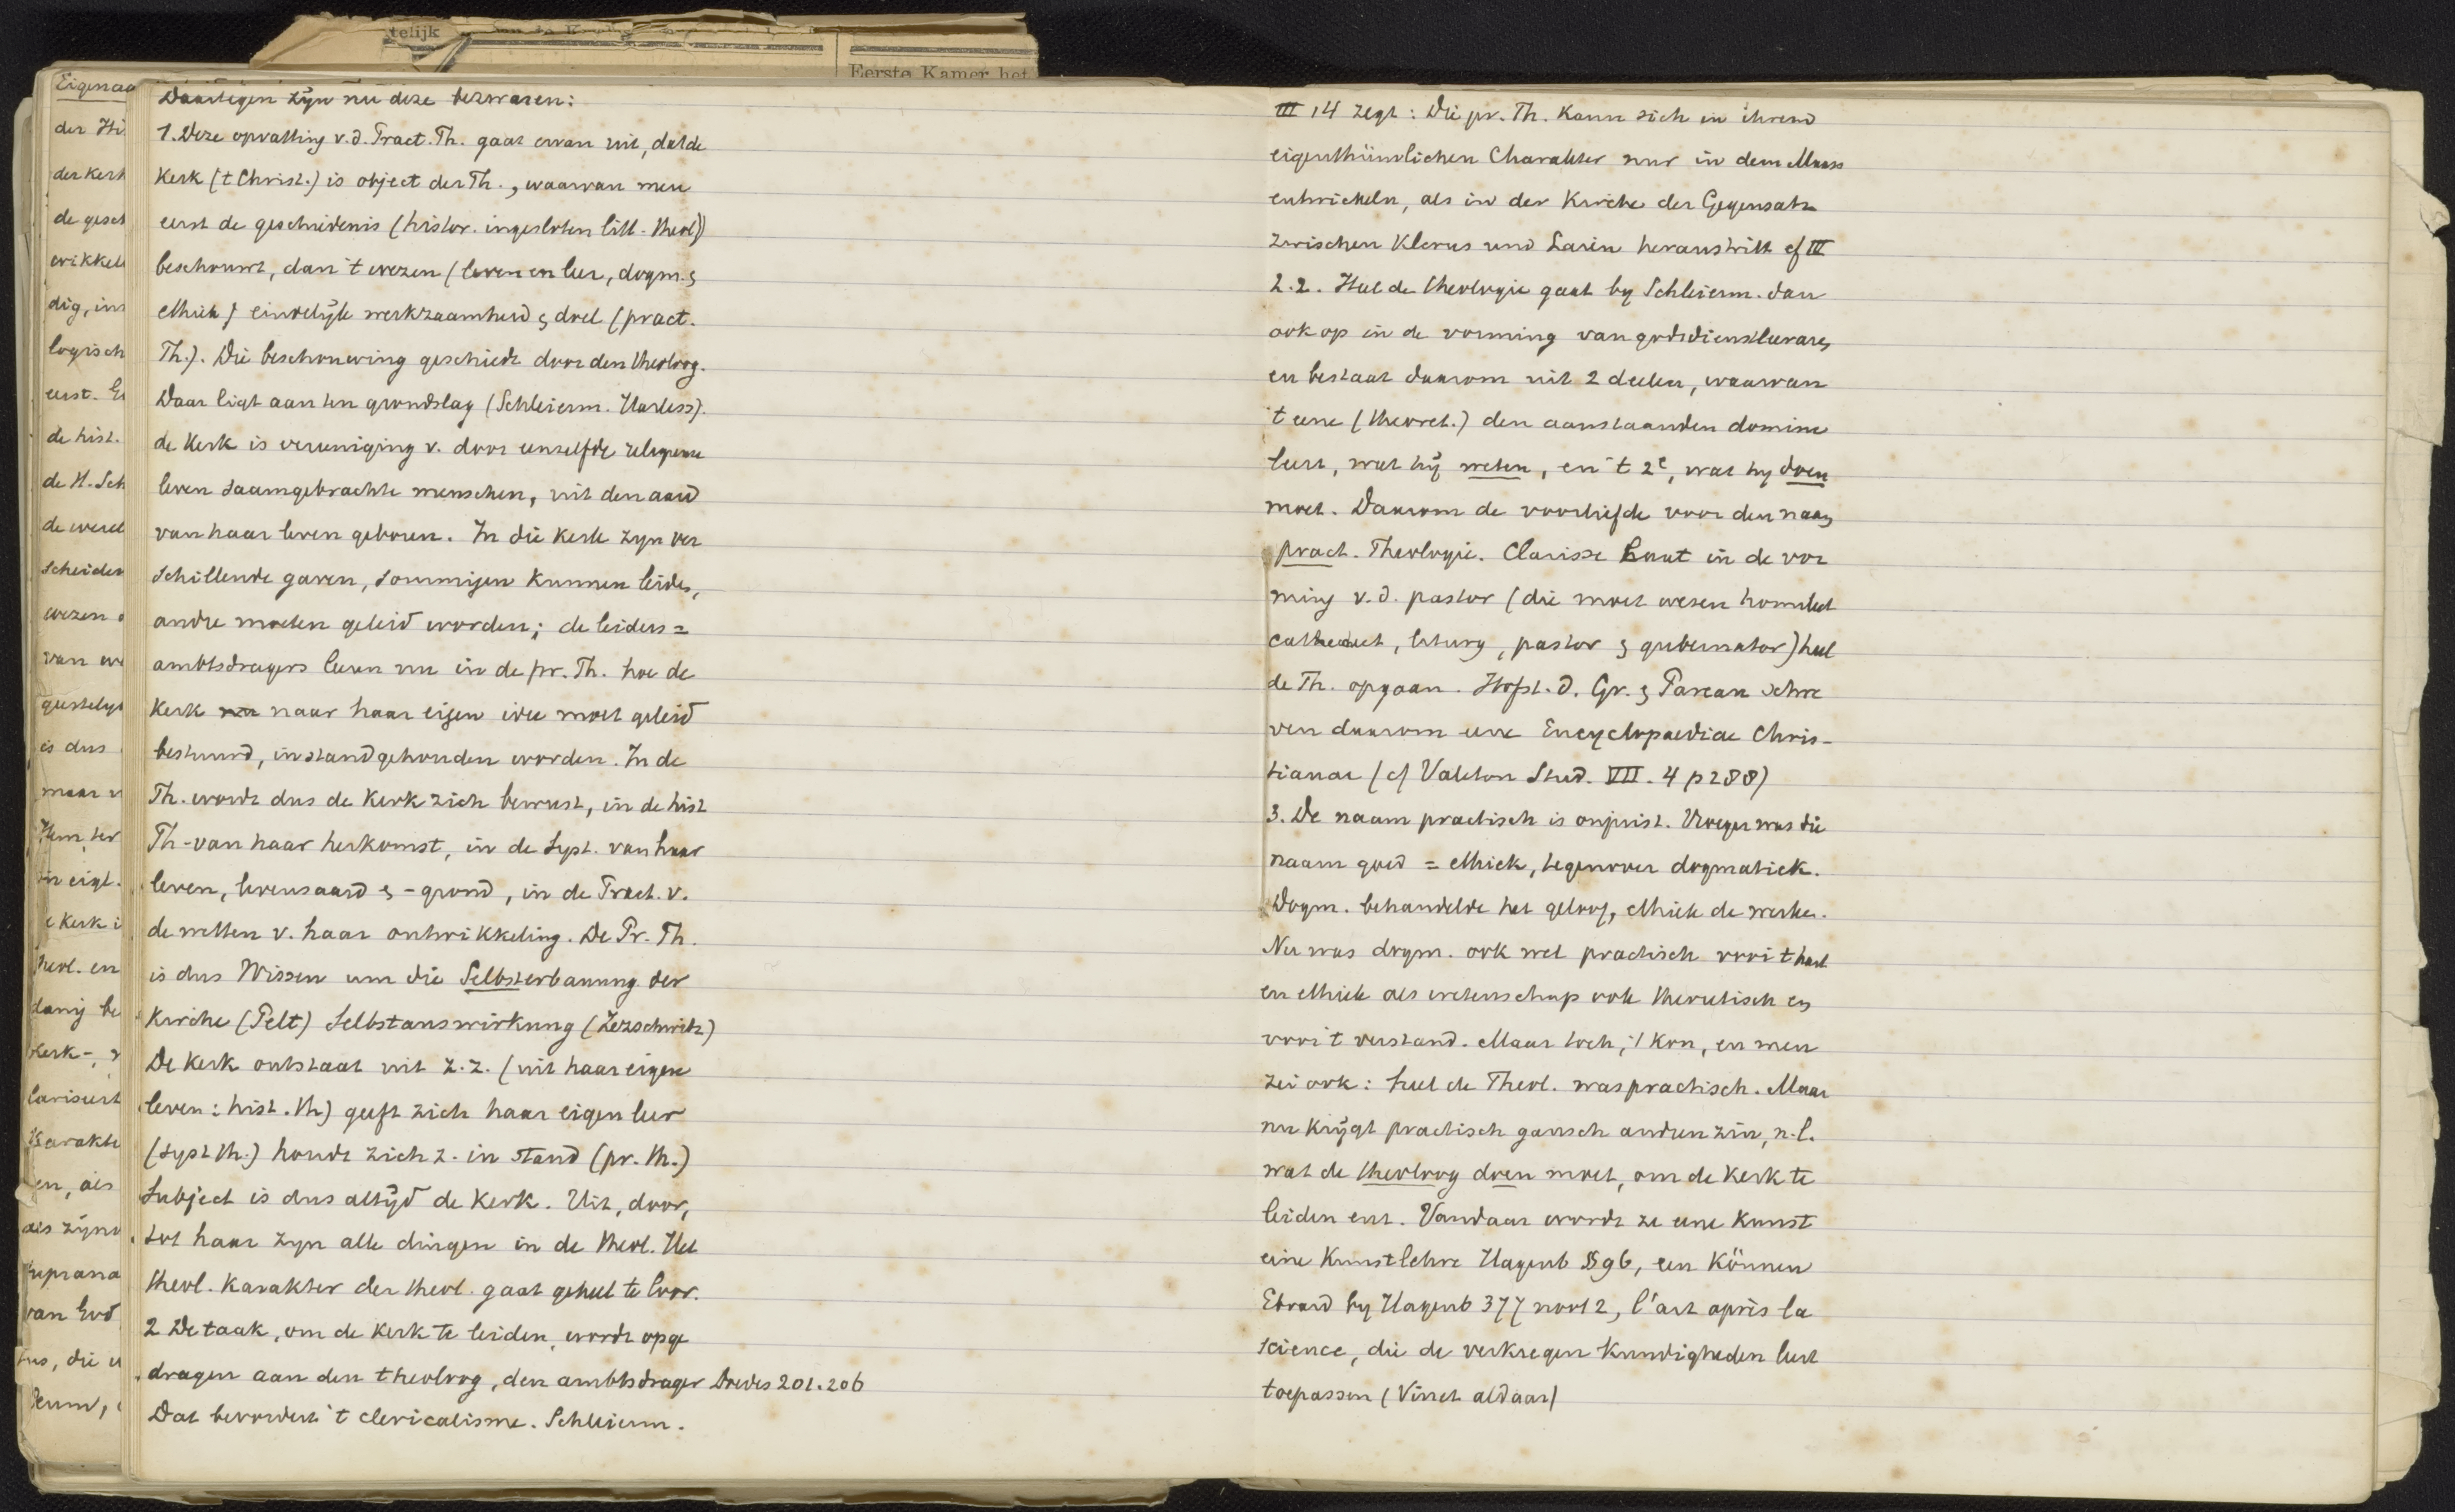 telijk
Eerste Kamer het
Eigenaa
der Hi
der Kerk
de gesch
wikkele
dig, in
logisch
eerst. E
de hist.
de H. Sch
de werel
scheiden
wezen
van
geestelyk
is dus
maar
Hem ter
in eigl.
Kerk i
Theol. en
danig be
Kerk-,
larisiert
Karakte
en, als
als zijn
suprana
van God
die
Deum,
Daartegen zijn nu deze bezwaren:
1. Deze opvatting v.d. Pract. Th. gaat ervan uit, dat de
Kerk (t Christ.) is object der Th., waarvan men
eerst de geschiedenis (histor. ingesloten litt. theol)
beschouwt, dan 't wezen (leven en leer, dogm. &
ethiek) eindelijk werkzaamheid & doel (pract.
Th.). Die beschouwing geschiedt door den theoloog.
Daar ligt aan ten grondslag (Schleierm. Harless).
de Kerk is vereeniging v. door eenzelfde religieuse
leven saamgebrachte menschen, uit den aard
van haar leven geboren. In die kerk zyn ver
schillende gaven, sommigen kunnen leiden,
andre moeten geleid worden; de leiders =
ambtsdragers leeren nu in de pr. Th. hoe de
Kerk naar haar eigen idee moet geleid
bestuurd, instandgehouden worden. In de
Th. wordt dus de Kerk zich bewust, in de hist
Th - van haar herkomst, in de Syst. van haar
leven, levensaard & -grond, in de Pract. v.
de wetten v. haar ontwikkeling. De Pr. Th.
is dus Wissen um die Selbsterbauung der
Kirche (Pelt) Selbstauswirkung (Zezschwitz)
De Kerk ontstaat uit z.z. (uit haar eigen
leven: hist. Th) geeft zich haar eigen leer
(Syst Th.) houdt zich z. in stand (pr. Th.)
Subject is dus altijd de Kerk. Uit, door,
tot haar zyn alle dingen in de theol. Het
theol. karakter der theol. gaat geheel te loor.
2 De taak, om de Kerk te leiden, wordt opge
dragen aan den theoloog, den ambtsdrager Doedes 201. 206
Dat bevordert 't clericalisme. Schleierm.
III 14 zegt: Die pr. Th. kann sich in ihrem
eigenthümlichen Charakter nur in dem Maass
entwickeln, als in der Kirche der Gegensatz
zwischen Klerus und Laien heraustritt cf III
2.2. Heel de theologie gaat by Schleierm. dan
ook op in de vorming van godsdienstleeraren
en bestaat daarom uit 2 deelen, waarvan
't eene (theoret.) den aanstaanden domine
leert, wat hij weten, en 't 2e, wat hy doen
moet. Daarom de voorliefde voor den naam
pract. Theologie. Clarisse laat in de vor
ming v.d. pastor (die moet wesen homileet
catecheet, liturg, pastor & gubernator) heel
de Th. opgaan. Hofst. d. Gr. & Pareau schre
ven daarom eene Encyclopaediae Chris-
tianae (cf Valeton Stud. VII. 4 p 288)
3. De naam practisch is onjuist. Vroeger was die
naam goed = ethiek, tegenover dogmatiek.
Dogm. behandelde het geloof, ethiek de werken.
Nu was dogm. ook wel practisch voor 't hart
en ethiek als wetenschap ook theoretisch en
voor 't verstand. Maar toch, 't kon, en men
zei ook: heel de Theol. was practisch. Maar
nu krijgt practisch gansch andren zin, n.l.
wat de theoloog doen moet, om de Kerk te
leiden enz. Vandaar wordt ze eene kunst
eine Kunstlehre Hagenb § 96, een Können
Ebrard by Hagenb 377 noot 2, l'art après la
science, die de verkregen kundigheden leert
toepassen (Vinet aldaar)